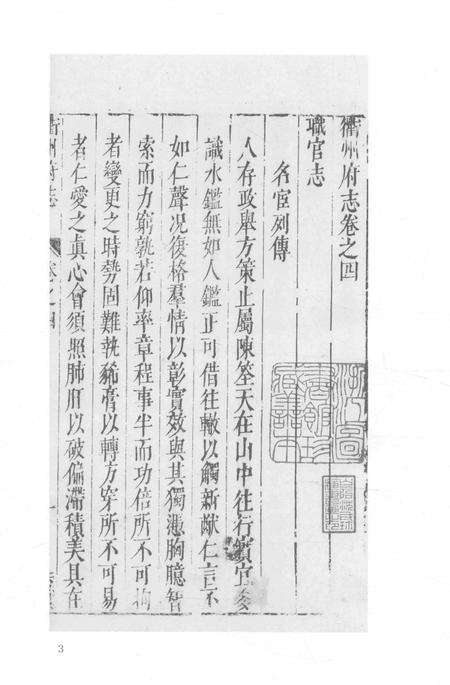 衢州府志卷之四
職官志
名宦列傳
人存政舉方策止屬陳筌天在山中往行實宜多
識水鑑無如人鑑正可借往轍以觸新猷仁言不
如仁聲况復格羣情以彰實效與其獨憑胸臆智
索而力窮孰若仰率章程事半而功倍所不可拘
者變更之時勢固難執豨膏以轉方穿所不可易
者仁愛之眞心會須照肺肝以破偏滯積美具在
衢州府志
卷之四
浙江圖書館珍藏善本
3